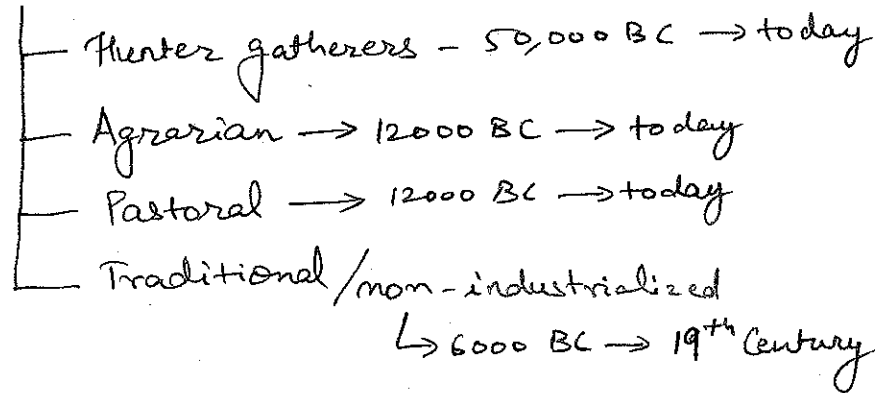 Hunter gatherers - 50,000 BC → today
Agrarian → 12000 BC → today
Pastoral → 12000 BC → today
Traditional/non-industrialized
↳ 6000 BC → 19th Century